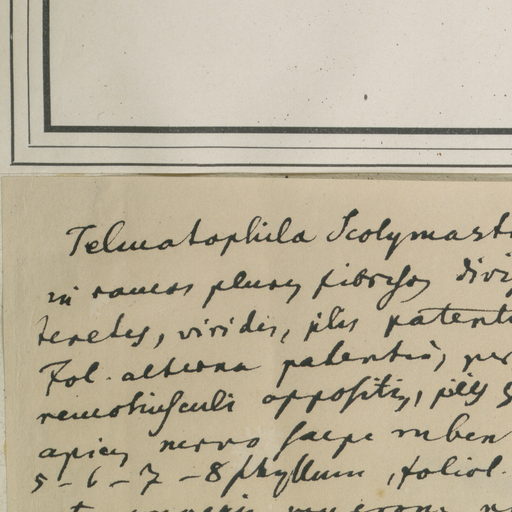 Telmatophila Scolymastr
in ramos plures fibrosos divis
teretes, virides, pilis patenti
Fol. alterna patentia, per
remotiusculi oppositis, pilis
apice nervo saepe ruben
5 - 6 - 7 - 8 phyllum, foliol.
mucrone